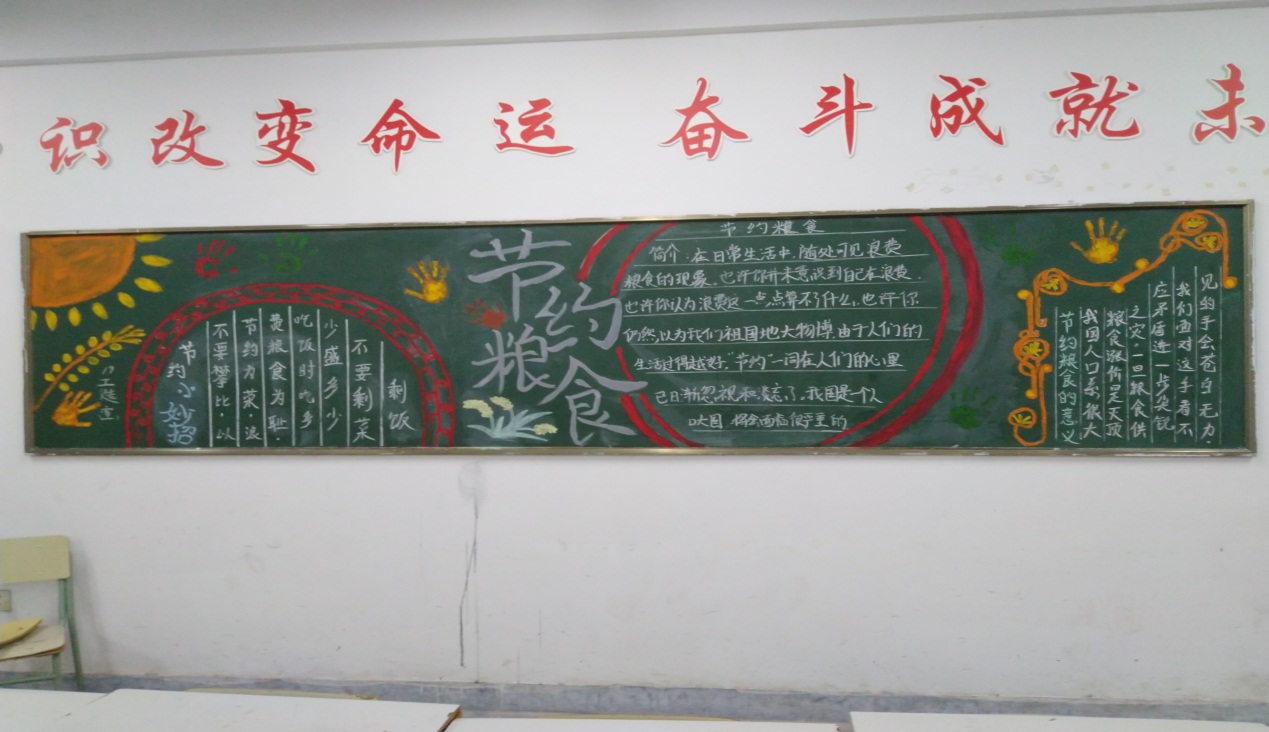 识改变命运 奋斗成就未
节约小妙招
不要攀比.以
节约为荣浪
费粮食为耻.
吃饭时吃多
少盛多少
不要剩菜
剩饭
节约粮食
节约粮食
简介:在日常生活中,随处可见浪费
粮食的现象,也许你并未意识到自己在浪费.
也许你认为浪费这一点点算不了什么,也许你
仍然以为我们祖国地大物博.由于人们的
生活过得越好,节约一词在人们的心里
已日渐忽视和淡忘了.我国是个人
口大国 将会面临很严重的
节约粮食的意义
我国人口系很大
粮食涨价是灭顶
之灾.一旦粮食供
应矛盾进一步尖锐
我们面对这手者不
见的手会苍白无力.